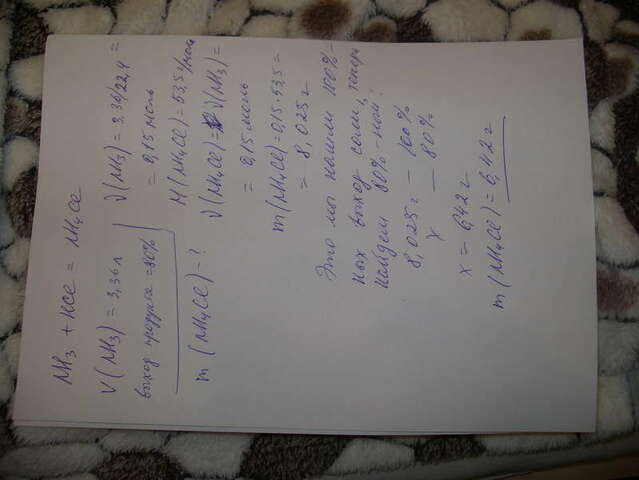 NH₃ + HCl = NH₄Cl
V(NH₃) = 3,36 л
выход продукта = 80%
m(NH₄Cl) - ?
ν(NH₃) = 3,36/22,4 =
= 0,15 моль
M(NH₄Cl) = 53,5 г/моль
ν(NH₄Cl) = ν(NH₃) =
= 0,15 моль
m(NH₄Cl) = 0,15·53,5 =
= 8,025 г
Это мы нашли 100%-
ных выход соли, теперь
найдем 80%-ный:
8,025 г — 100%
x — 80%
x = 6,42 г
m(NH₄Cl) = 6,42 г